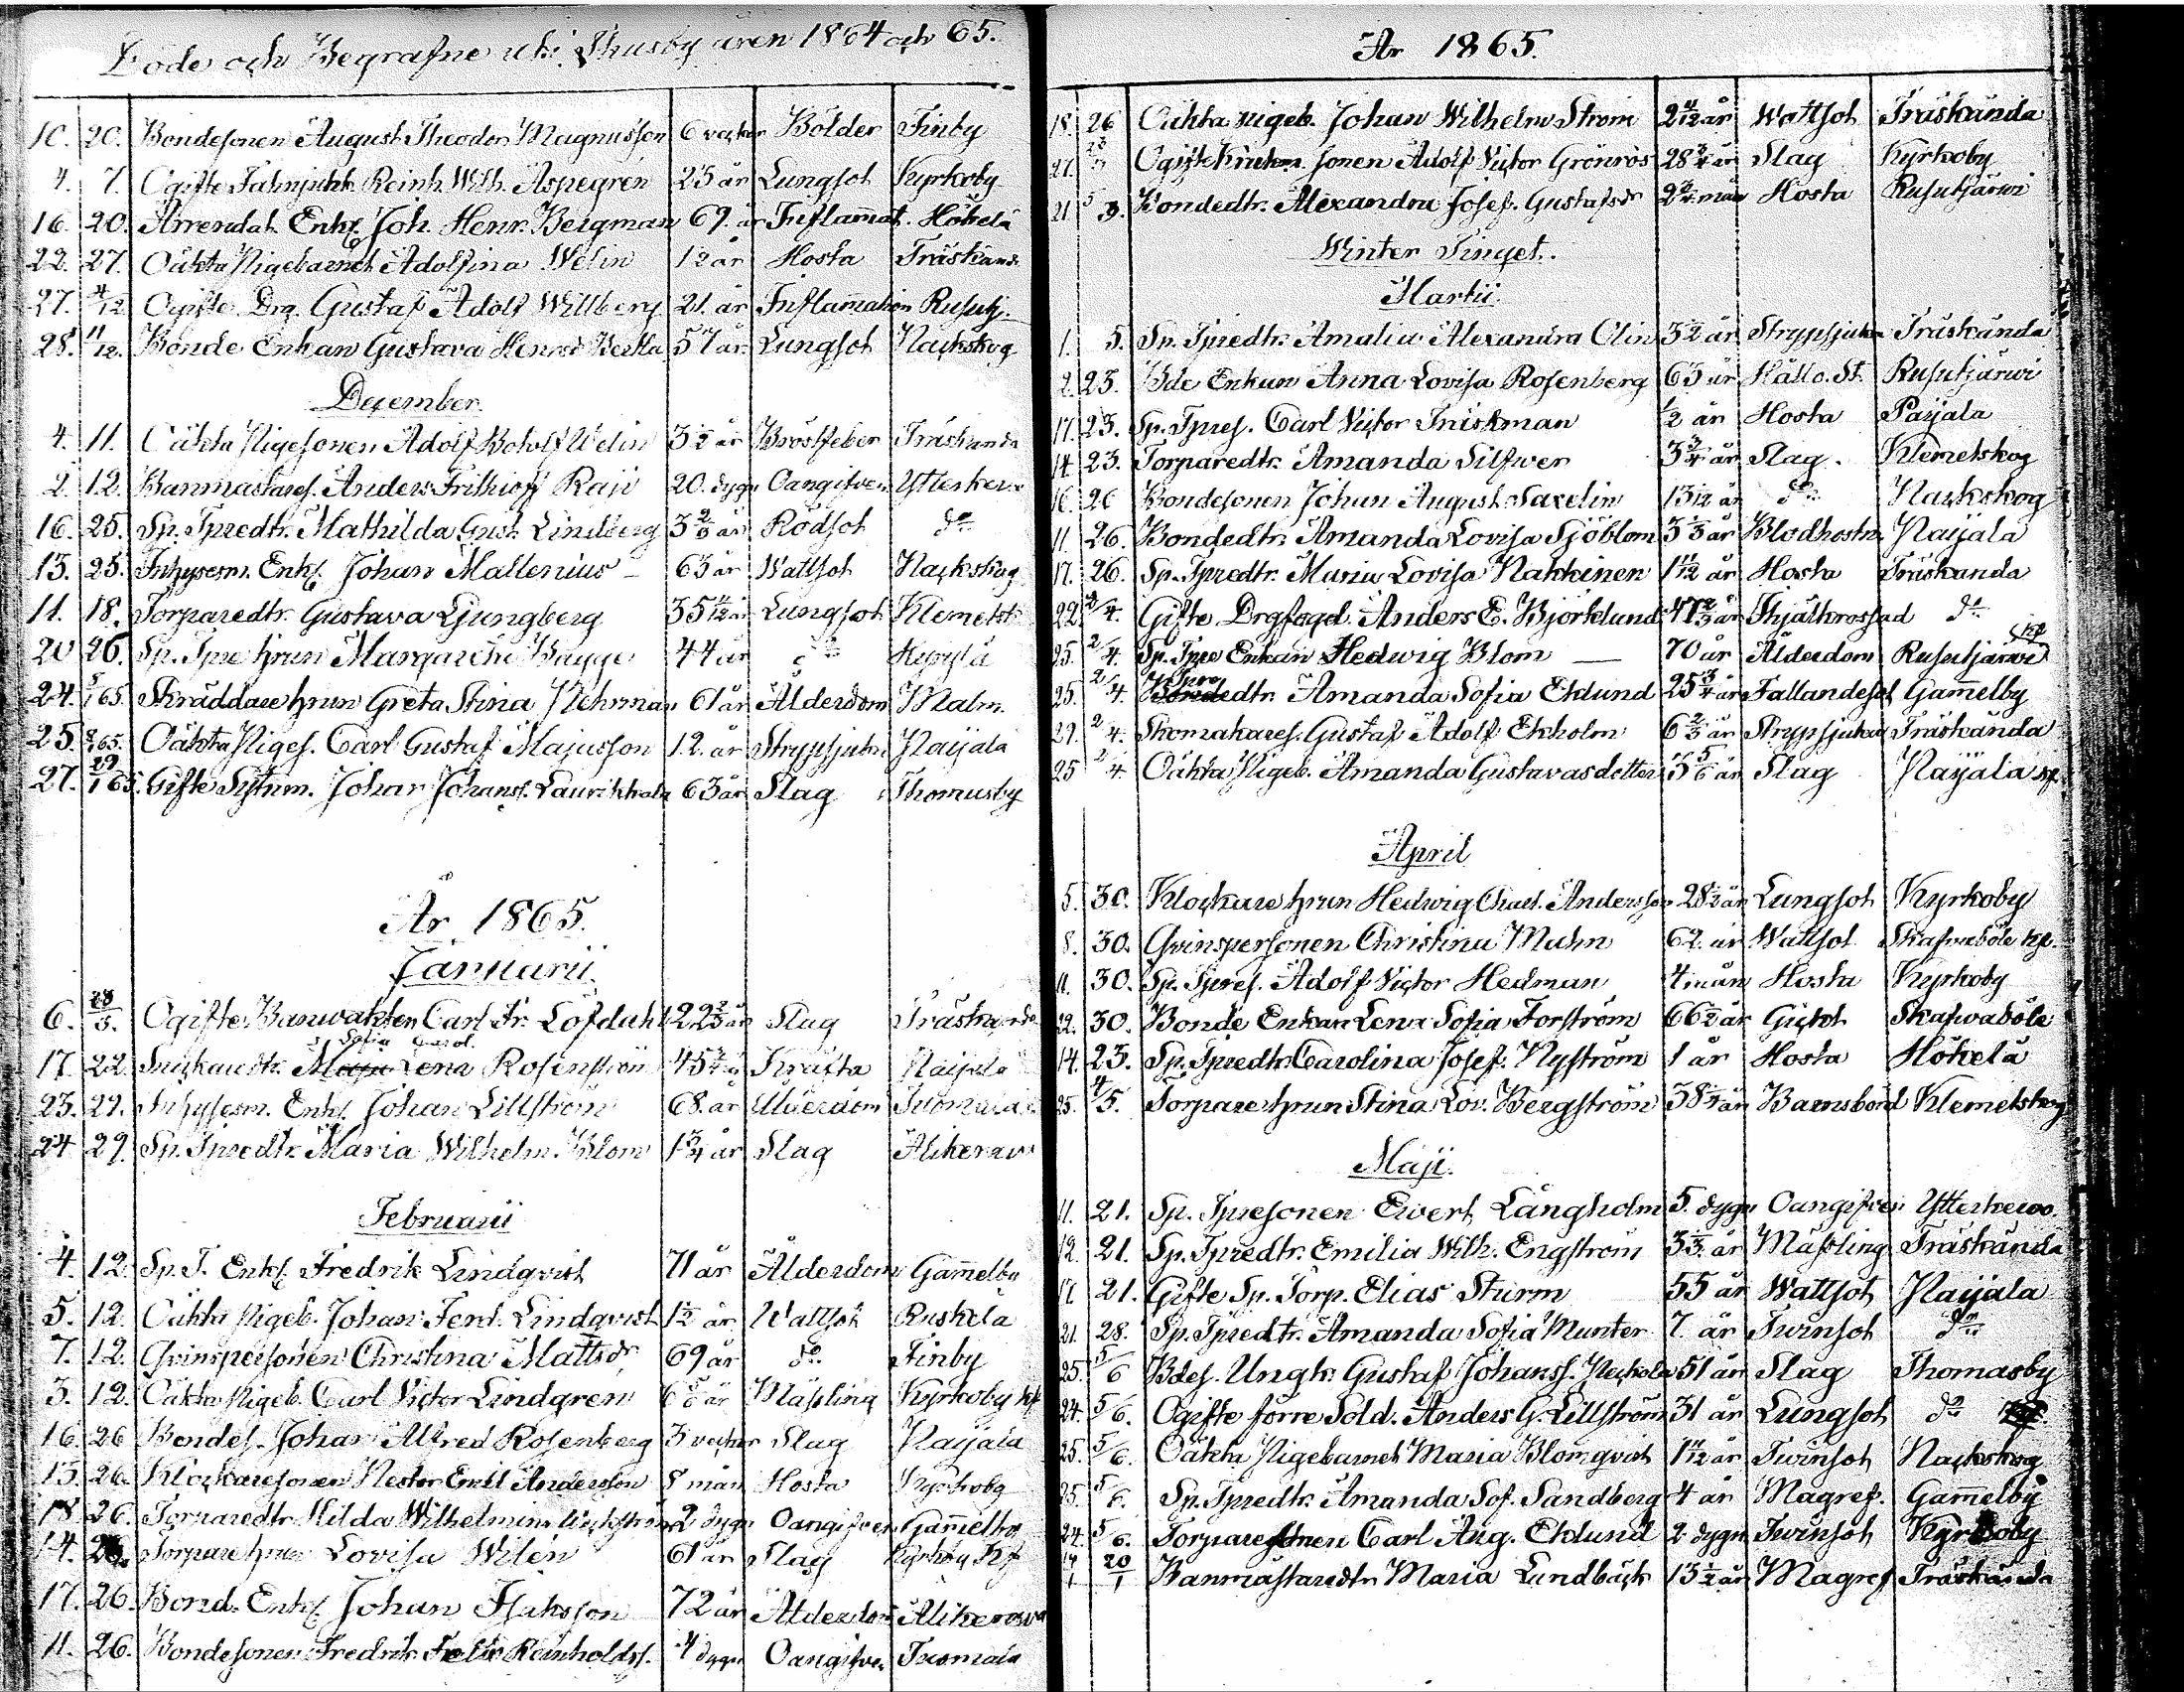 Döde och Begrafne uti Thusby åren 1864 och 65.
10. 20. Bondesonen August Theodor Magnusson 6 veckor Bölder Finby
4. 7. Ogifte Reinh. Wilh. Aspegren 25 år Lungsot Kyrkoby
16. 20. Arrendat. Enkl. Joh. Henr. Bergman 69. år Inflammat. Hökelä
22. 27. Oäkta Pigebarnet Adolfina Welin 1½ år Hosta Träskand.
27. 4/12 Ogifte Drg. Gustaf Adolf Willberg 21. år Inflammation Rusutj.
28. 11/12. Bonde Enkan Gustava Henrd. 57 år Lungsot Nackskog
December.
4. 11. Oäkta Pigesonen Adolf Welin 3½ år Bröstfeber Träskanda
2. 12. Banmästares. Anders Frithioff 20. dygn Oangifven Ytterkerv.
16. 25. Sp. Tpredtr. Mathilda Gust. Lindberg 3⅔ år Rödsot do
13. 25. Inhysesm. Enkl. Johan Mallenius 63 år Wattsot Nackskog
11. 18. Torparedtr. Gustava Ljungberg 35 11/12 år Lungsot Klemetsk.
20 26. Sp. Tpre hrun Margareta Bagge 44 år do
24. 65. Skräddare hrun Greta Stina Nehrman 61 år Ålderdom Malm.
25. 65. Oäkta Piges. Carl Gustaf Majusson 12. år Strypsjukn. Paijala
27. 29/1 65. Gifte Sytnm. Johan Johanss. Laurikkala 63 år Slag Thomasby
År 1865.
Januarii
6. Ogifte Banwakten Carl Fr. Löfdahl 22⅔ år Slag Träskanda
Sofia Carol.
17. 22. Lena Rosenström Kräfta Paijala
23. 29. Inhysesm. Enkl. Johan Lillström 68. år Ålderdom Tuomala
24 29. Sp. Tpredtr. Maria Wilhelm. Blom 1¾ år Slag Alikerava
Februarii
4. 12. Sp. T. Enkl. Fredrik Lindqvist 71 år Ålderdom Gammelby
5. 12. Oäkta Pigeb. Johan Ferd. Lindqvist 1½ år Wattsot Ruskela
7. 12. Qvinspersonen Christina Mattsdr 69 år do Finby
3. 12. Oäkta Pigeb. Carl Victor Lindgren Mässling Kyrkoby
16. 26 Bondes. Johan Alfred Rosenberg 3 veckor Slag Paijala
13. 26. Klockaresonen Nestor Emil Andersson 8 mån Hosta Kyrkoby
18. 26. Torparedtr. Hilda Wilhelmina 2 dygn Oangifven Gammelby
14. 26. Torpare hrun Lovisa Wilén 61 år Slag Kyrkoby
17. 26. Bond. Enkl. Johan Isaksson 72 år Ålderdom Alikerava
11. 26. Bondesonen Fredrik Felix Reinholds. 4 dygn Oangifven Tuomala
År 1865.
18. 26 Oäkta Pigeb. Johan Wilhelm Ström Wattsot Träskända
21. Ogifte sonen Adolf Victor Grönros 28¾ år Slag Kyrkoby
21. Bondedtr. Alexandra Josef. Gustafsdr mån Hosta Rusutjärwi
Winter Tinget.
Martii.
1. 5. Sp. Tpredtr. Amalia Alexandra Olin 3½ år Strypsjukan Träskända
2. 23. Bde Enkan Anna Lovisa Rosenberg 63 år Håll o. St. Rusutjärwi
17. 23. Sp. Tpres. Carl Victor ½ år Hosta Paijala
14. 23. Torparedtr. Amanda Silfwer 3¾ år Slag. Klemetskog
16. 26 Bondesonen Johan August Saxelin do Nackskog
11. 26. Bondedtr. Amanda Lovisa Sjöblom 3⅓ år Blodhostn. Paijala
17. 26. Sp. Tpredtr. Maria Lovisa Nakkinen 1 1/12 år Hosta Träskanda
22. 2/4. Gifte Drgfogd. Anders E. Björklund 47⅔ år do
25. 2/4. Sp. Tpre Enkan Hedwig Blom 70 år Ålderdom Rusutjärwi
25. 2/4. Tpre Bondedtr. Amanda Sofia Eklund 25¾ år Fallandesot Gammelby
29. 2/4. Skomakares. Gustaf Adolf Ekholm 6⅔ år Strypsjukan Träskända
25 2/4. Oäkta Pigeb. Amanda Gustavasdotter 5/6 år Slag Paijala
April
5. 30. Klockare hrun Hedwig Charl. Andersson 28½ år Lungsot Kyrkoby
8. 30. Qvinspersonen Christina Malm 62. år Wattsot Skafvaböle
11. 30. Sp. Tpres. Adolf Victor Hedman 4 mån Hosta Kyrkoby
22. 30. Bonde Enkan Lena Sofia Forström 66½ år Gickt Skafvaböle
14. 23. Sp. Tpredtr. Carolina Josef. Nyström 1 år Hosta Hökelä
25. 4/5. Torpare hrun Stina Lov. Bergström år Barnsbörd Klemetskog
Maji.
11. 21. Sp. Tpresonen Ewert Långholm 5. dygn Oangifven Ytterkervo.
12. 21. Sp. Tpredtr. Emilia Wilh. Engström 3⅓ år Mässling Träskända
21. Gifte Sp. Torp. Elias Sturm 55 år Wattsot Paijala
21. 28. Sp. Tpredtr. Amanda Sofia Munter 7. år Twinsot do
25. 5/6 Bdes. Ungk. Gustaf Johanss. 51 år Slag Thomasby
24. 5/6. Ogifte förre Sold. Anders G. Lillström 31 år Lungsot do
25. 5/6. Oäkta Pigebarnet Maria Blomqvist 1 1/12 år Twinsot Nackskog
25. 5/6. Sp. Tpredtr. Amanda Sof. Sandberg 4 år Magref. Gammelby
24. 5/6. Torparesonen Carl Aug. Eklund 2 dygn Twinsot Kyrkoby
20/1 Banmästaredtr Maria Lundbäck 13½ år Magref Träskända